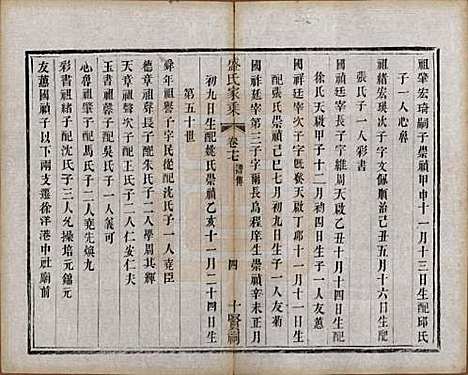 祖肇宏琦嗣子崇禎甲申十一月十三日生配邱氏
子一人心耕
祖緒宏瑛次子字文佩順治己丑五月十六日生配
張氏子一人彩書
國祥廷宗長子字維周天啟乙丑十月十四日生配
徐氏天啟甲子十二月初四日生子一人友蕙
國祚廷宗次子字旣敘天啟丁卯十一月十一日生
配張氏崇禎己巳七月初九日生子一人友菊
國祥廷宗第三子字爾長爲程序生崇禎辛未正月
盛氏家乘
卷七
譜傳
四
十賢祠
初九日生配姚氏崇禎乙亥十一月二十四日生
第五十世
舜年祖譽子字民從配沈氏子一人堯臣
德章祖聲長子字天成配朱氏子二人學周其釋
天章祖聲次子配沈氏子二人仁安仁夫
玉書祖書子配吳氏子一人義可
心耕祖肇子配馬氏子二人堯先煥九
彩書祖緒子配沈氏子三人允操培元錦元
友蕙國禎子以下兩支遷徐洋港中社廟前